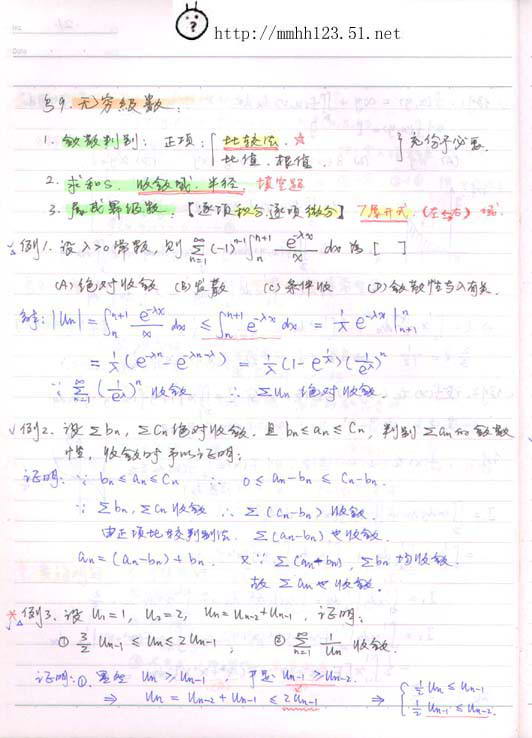 http://mmhh123.51.net
§9. 无穷级数:
1. 敛散判别: 正项: { 比较法. ☆ 比值. 根值 } 充份予必要.
2. 求和S. 收敛域. 半径. 填空题
3. 展成幂级数. 【逐项积分.逐项微分】 7展开式.
例1. 设 λ>0 常数, 则 ∑_{n=1}^∞ (-1)^{n-1} ∫_n^{n+1} e^{-λx}/x dx 为 [ ]
(A) 绝对收敛 (B) 发散 (C) 条件收 (D) 敛散性与λ有关.
解: |Un| = ∫_n^{n+1} e^{-λx}/x dx ≤ ∫_n^{n+1} e^{-λx} dx = 1/λ e^{-λx} |_{n+1}^n
= 1/λ (e^{-λn} - e^{-λn-λ}) = 1/λ (1 - e^{λ}) (1/e^λ)^n
∵ ∑_{n=1}^∞ (1/e^λ)^n 收敛 ∴ ∑Un 绝对收敛.
√ 例2. 设 ∑bn, ∑Cn 绝对收敛. 且 bn ≤ an ≤ Cn, 判别 ∑an 的敛散
性, 收敛时予以证明:
证明: ∵ bn ≤ an ≤ Cn ∴ 0 ≤ an-bn ≤ Cn-bn.
∵ ∑bn, ∑Cn 收敛 ∴ ∑(Cn-bn) 收敛.
由正项比较判别法. ∑(an-bn) 也收敛.
an = (an-bn) + bn. 又∵ ∑(an-bn), ∑bn 均收敛.
故 ∑an 也收敛.
* 例3. 设 U₁=1, U₂=2, Un = Un-2 + Un-1. 证明:
① 3/2 Un-1 ≤ Un ≤ 2Un-1; ② ∑_{n=1}^∞ 1/Un 收敛.
证明: ①. Un ≥ Un-1. 于是 Un-1 ≥ Un-2.
⇒ Un = Un-2 + Un-1 ≤ 2Un-1 ⇒ { 1/2 Un ≤ Un-1
1/2 Un-1 ≤ Un-2